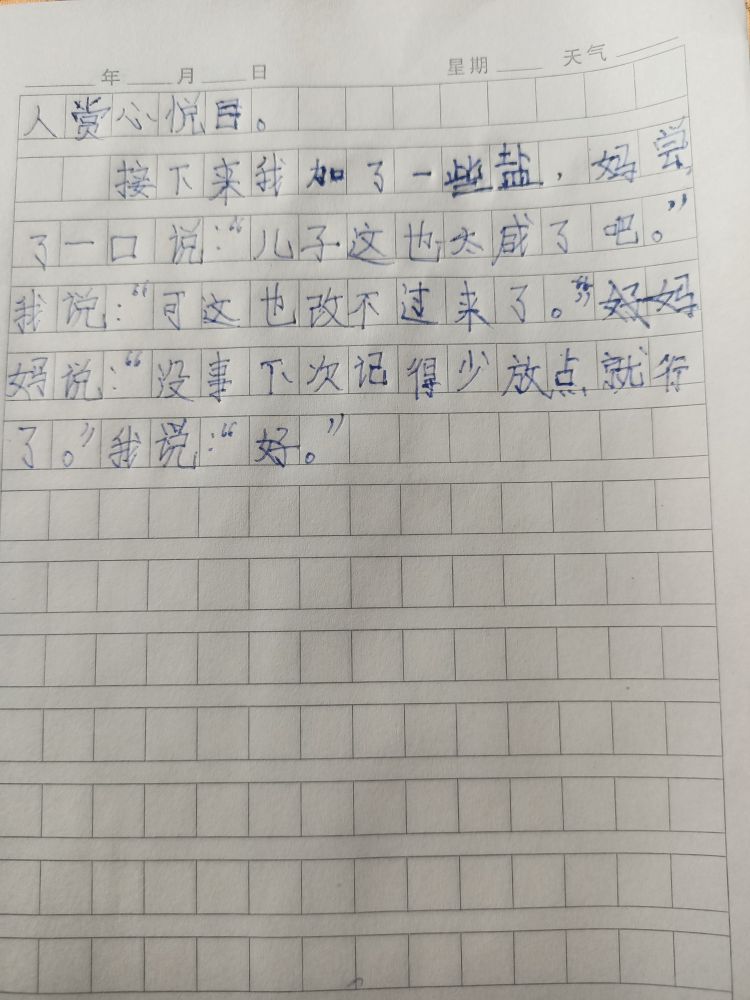 年 月 日 星期 天气
人赏心悦目。
接下来我加了一些盐，妈尝
了一口说：“儿子这也太咸了吧。”
我说：“可这也改不过来了。”
妈说：“没事下次记得少放点就行
了。”我说：“好。”